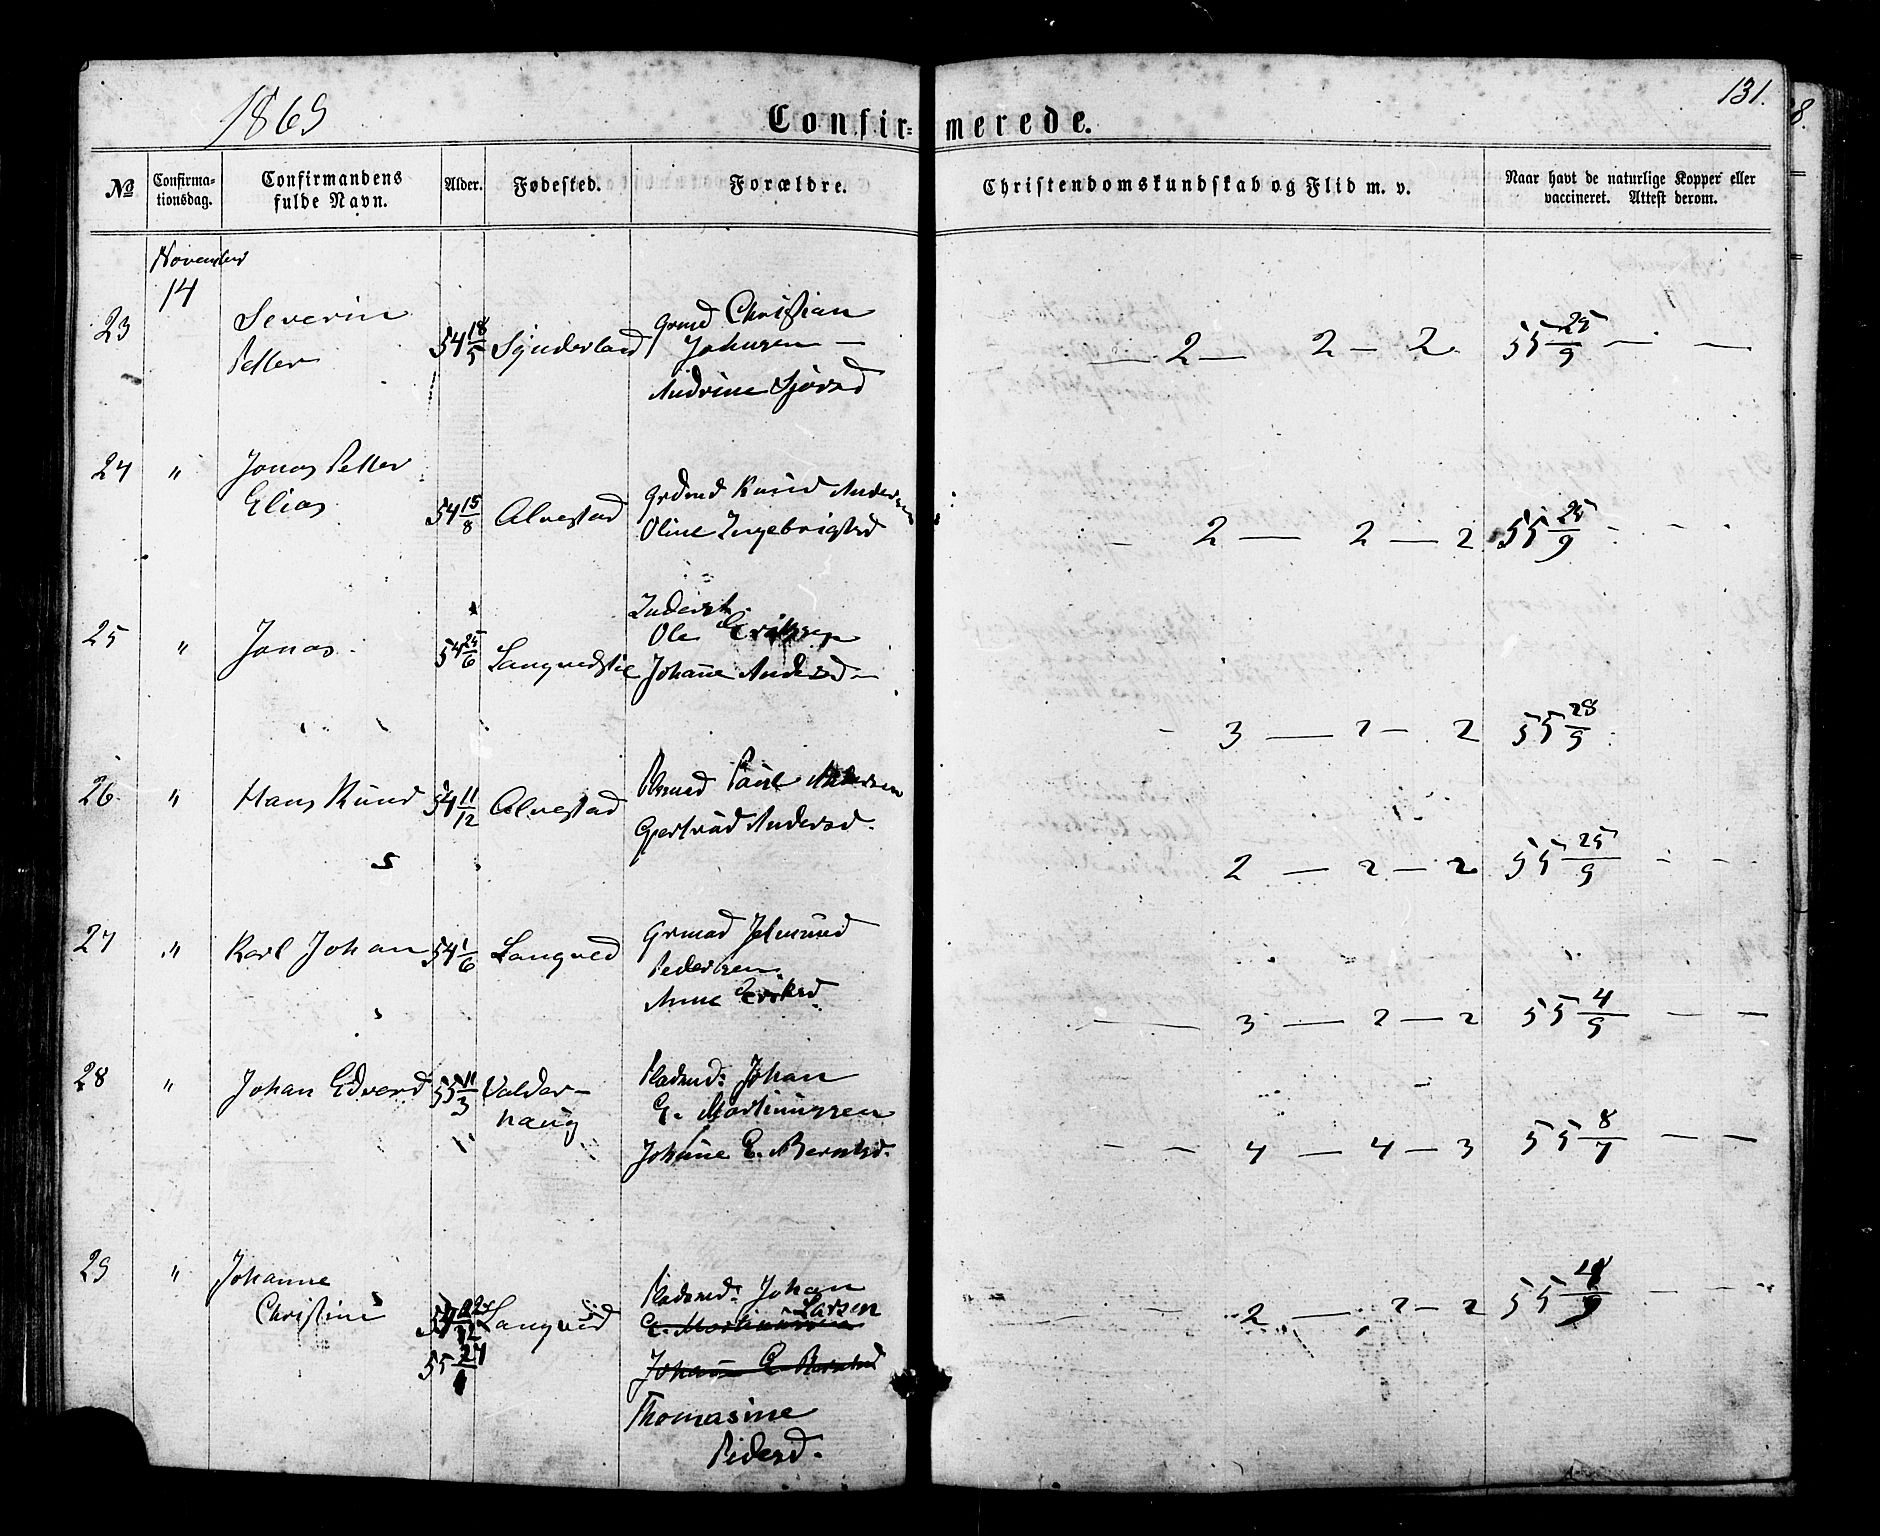 1869
Confir= merede.
131.
8.
No
Confirma-
tionsdag.
Confirmandens
fulde Navn.
Alder.
Fødested.
Forældre.
Christendomskundskab og Flid m. v.
Naar havt de naturlige Kopper eller
vaccineret. Attest derom.
November
14
23 Severin
Petter
54 18/5 Sønderland
Grmd Christian
Johnsen —
Andrine Sjörsd
— 2 — 2 — 2 55 25/9 — —
24 " Jonas Petter
Elias
54 15/8 Alvestad
Grdmd Knud Andersen
Oline Ingebrigtsd
— 2 — 2 — 2 55 25/9 - - -
25 " Jonas.
54 25/6 Langvedstie
Inderst
Ole Eriksen
Johane Andersd —
- 3 — 2 — 2 55 28/9
26 " Hans Knud 54 11/12 Alvestad
Paul Andersen
Gjertrud Andersd.
2 — 2 — 2 55 25/9 - -
27 " Karl Johan 54 1/6 Langved
Grmad
Pedersen.
Anne Eriksd.
— 3 — 2 — 2 55 4/9 — —
28 " Johan Edvard 55 11/3 Valder-
haug
Pladsmd: Johan
E. Martinussen
Johane E. Berntsd.
- - 4 — 4 — 3 55 8/7 — —
29 " Johanne
Christine
54 22/12 Langved
55 27/1
Pladsmd: Johan
Larsen
E. Martinussen
Johane E Berntsd
Thomasine
Pedersd.
- 2 — 2 — 2 55 — - -